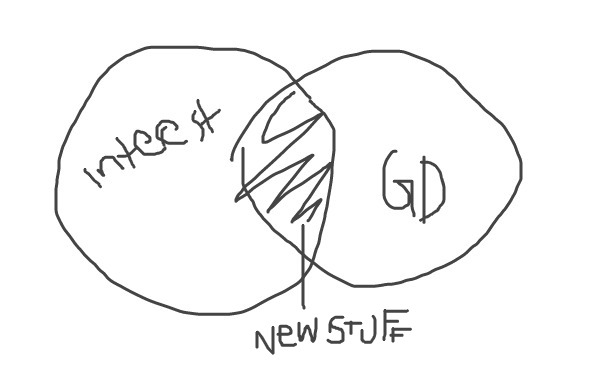 interest
GD
NEW STUFF